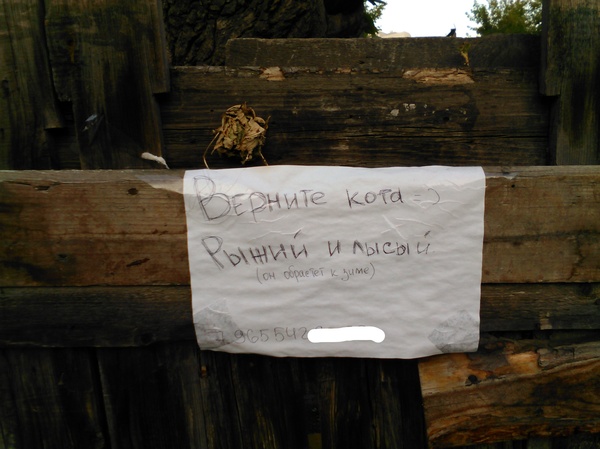 Верните кота =)
Рыжий и лысый
(он обрастет к зиме)
8 9655428